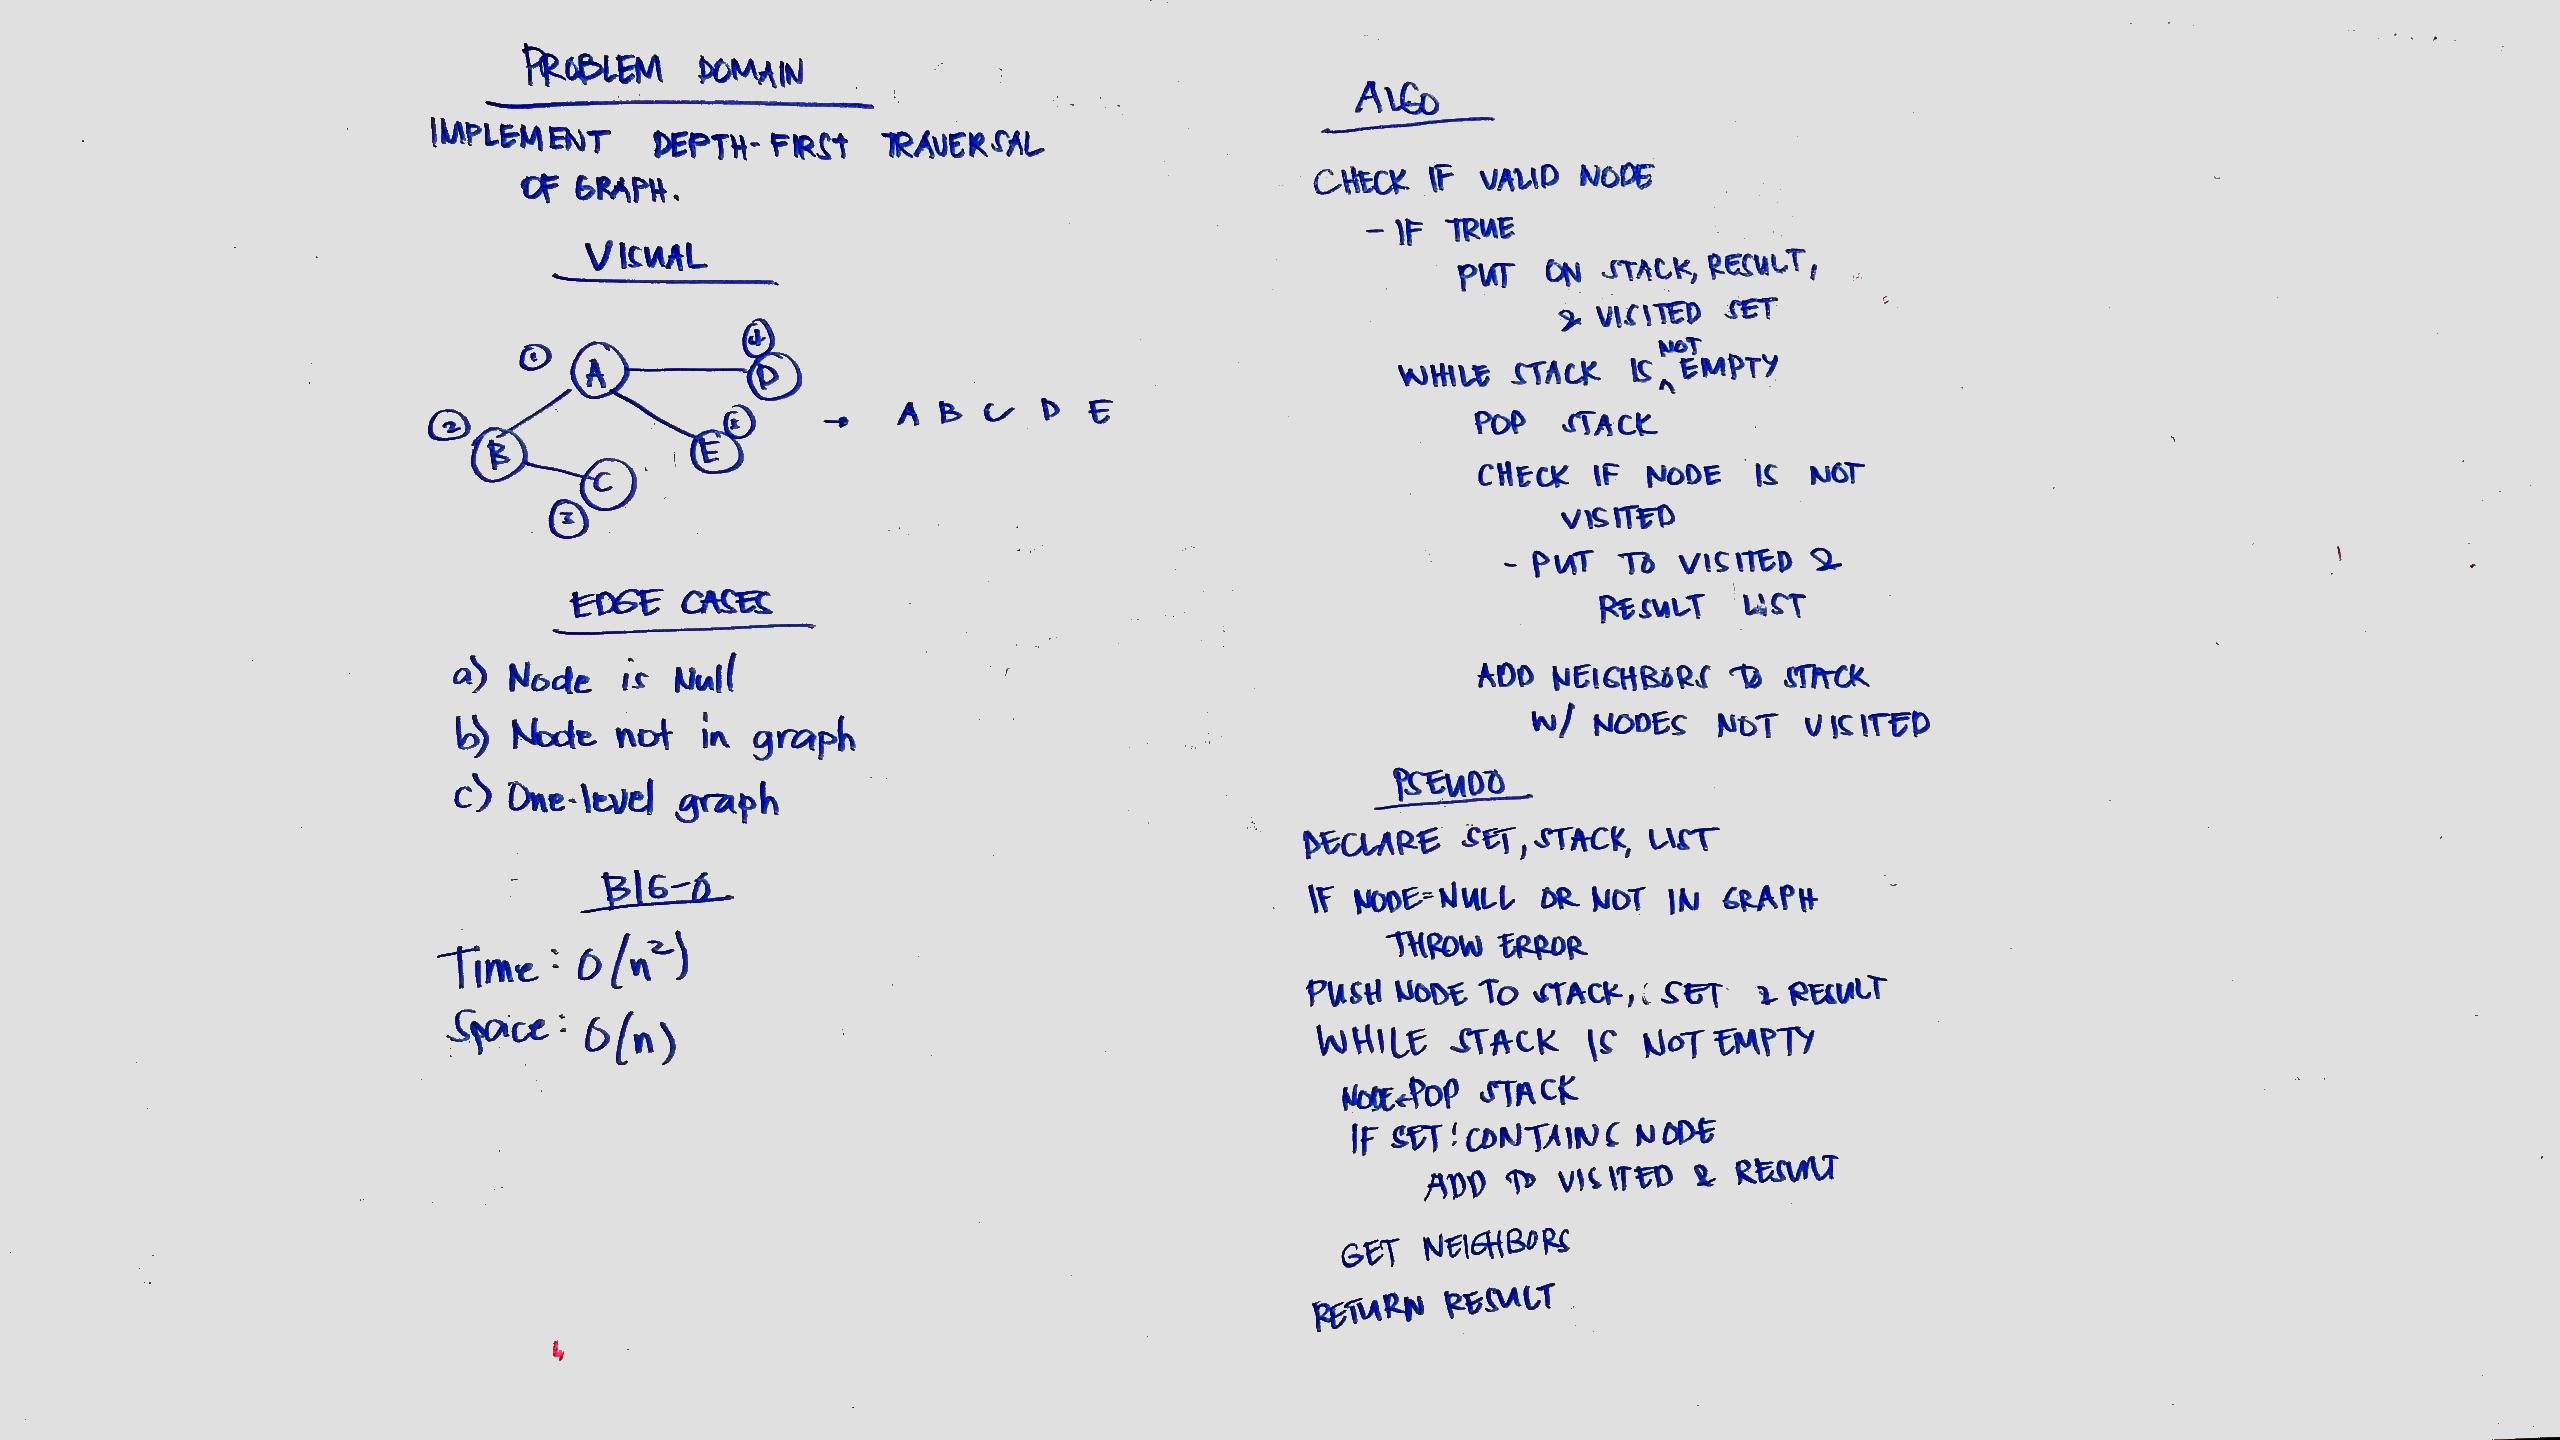 PROBLEM DOMAIN
IMPLEMENT DEPTH-FIRST TRAVERSAL
OF GRAPH.
VISUAL
1 A 4 D
2 B E 5
C
3
→ A B C D E
EDGE CASES
a) Node is Null
b) Node not in graph
c) One-level graph
BIG-O
Time: O(n²)
Space: O(n)
ALGO
CHECK IF VALID NODE
- IF TRUE
PUT ON STACK, RESULT,
& VISITED SET
WHILE STACK IS NOT EMPTY
POP STACK
CHECK IF NODE IS NOT
VISITED
- PUT TO VISITED &
RESULT LIST
ADD NEIGHBORS TO STACK
W/ NODES NOT VISITED
PSEUDO
DECLARE SET, STACK, LIST
IF NODE=NULL OR NOT IN GRAPH
THROW ERROR
PUSH NODE TO STACK, SET & RESULT
WHILE STACK IS NOT EMPTY
NODE←POP STACK
IF SET !CONTAINS NODE
ADD TO VISITED & RESULT
GET NEIGHBORS
RETURN RESULT